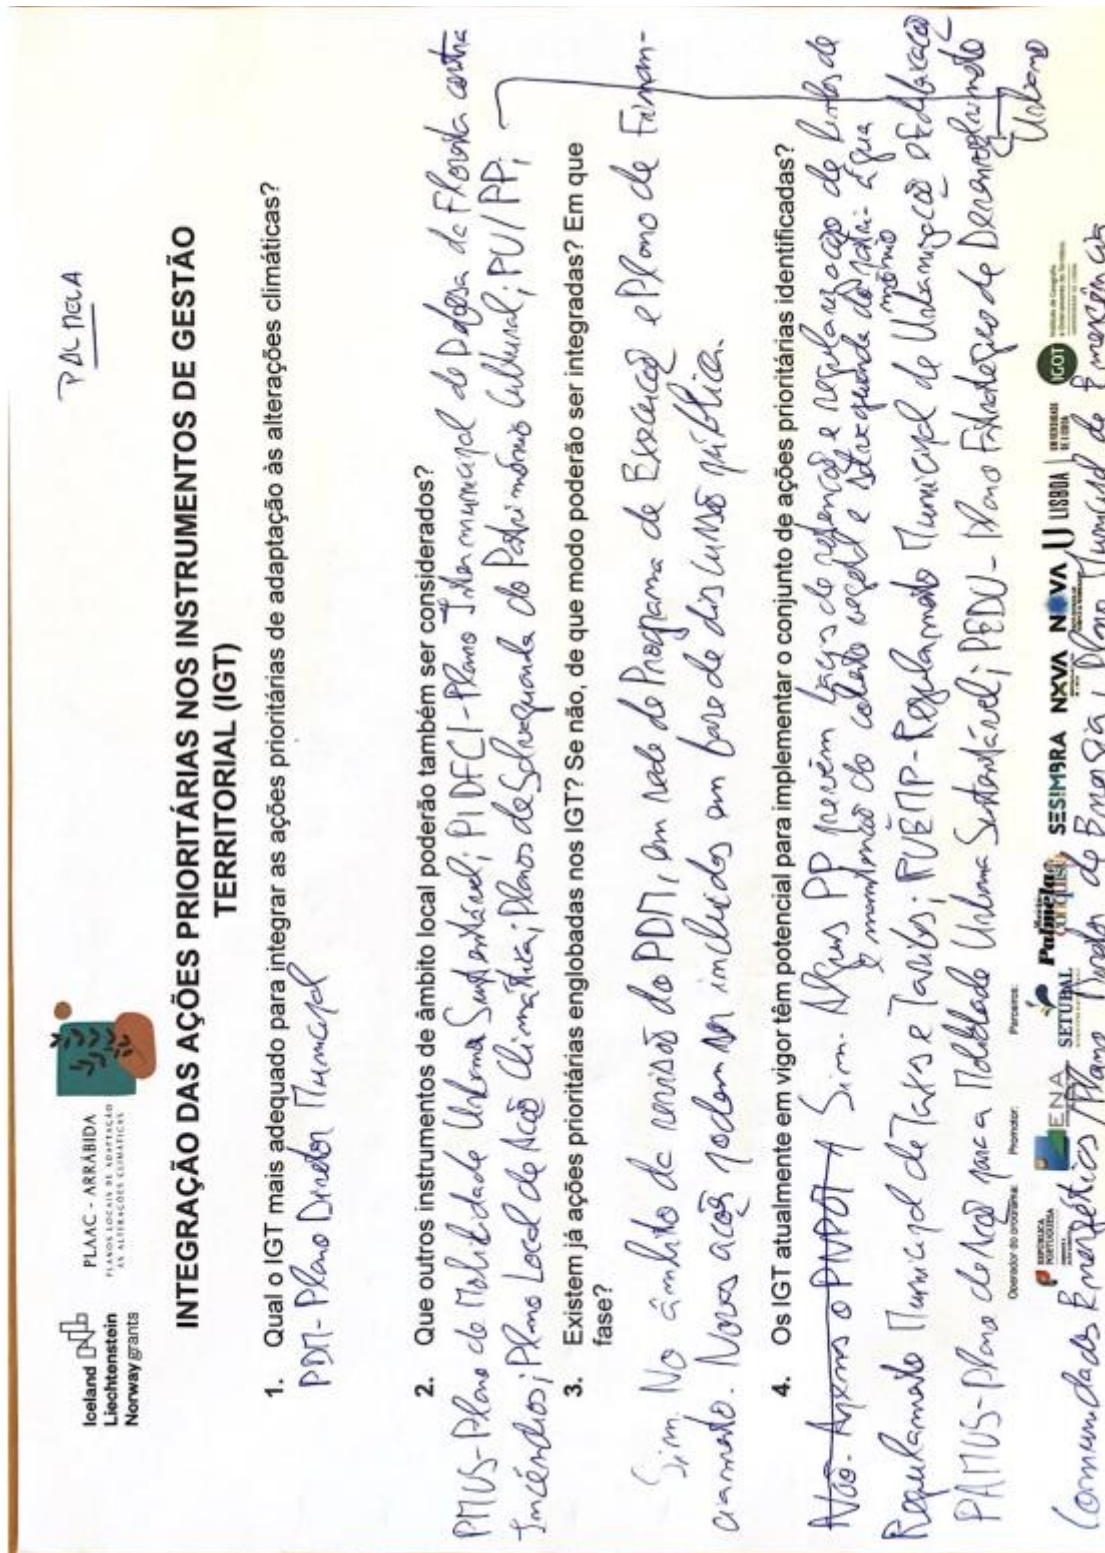 Iceland
Liechtenstein
Norway grants
PLAAC - ARRÁBIDA
PLANOS LOCAIS DE ADAPTAÇÃO
ÀS ALTERAÇÕES CLIMÁTICAS
PALMELA
INTEGRAÇÃO DAS AÇÕES PRIORITÁRIAS NOS INSTRUMENTOS DE GESTÃO
TERRITORIAL (IGT)
1. Qual o IGT mais adequado para integrar as ações prioritárias de adaptação às alterações climáticas?
PDM - Plano Diretor Municipal
2. Que outros instrumentos de âmbito local poderão também ser considerados?
PMUS - Plano de Mobilidade Urbana Sustentável; PIDFCI - Plano Intermunicipal de Defesa da Floresta contra
Incêndios; Plano Local de Ação Climática; Planos de Salvaguarda do Património Cultural; PU/PP;
3. Existem já ações prioritárias englobadas nos IGT? Se não, de que modo poderão ser integradas? Em que
fase?
Sim. No âmbito da revisão do PDM, em sede de Programa de Execução e Plano de Finan-
ciamento. Novas ações podem ser incluídas em fase de discussão pública.
4. Os IGT atualmente em vigor têm potencial para implementar o conjunto de ações prioritárias identificadas?
Não. Apenas o PNPOT Sim. Alguns PP prevêm bacias de retenção e regularização de linhas de
água
e manutenção do coberto vegetal e salvaguarda do patri-
mónio
Regulamento Municipal de Taxas e Tarifas; RUEMP - Regulamento Municipal de Urbanização e Edificação
PAMUS - Plano de Ação para a Mobilidade Urbana Sustentável; PEDU - Plano Estratégico de Desenvolvimento
Urbano
Operador do programa:
Promotor:
Parceiros:
REPÚBLICA
PORTUGUESA
ENA
SETÚBAL
Palmela
conquista
SESIMBRA
NOVA
NOVA
U LISBOA
UNIVERSIDADE
DE LISBOA
IGOT
Comunidades Energéticas / Plano de Energia; Plano Municipal de Emergência